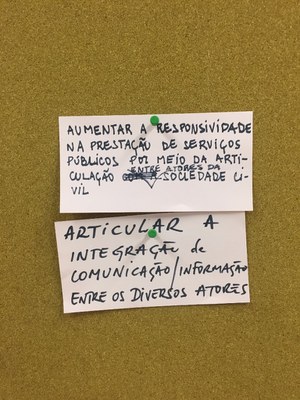 AUMENTAR A RESPONSIVIDADE
NA PRESTAÇÃO DE SERVIÇOS
PÚBLICOS POR MEIO DA ARTI-
CULAÇÃO ENTRE ATORES DA SOCIEDADE CI-
VIL
ARTICULAR A
INTEGRAÇÃO de
COMUNICAÇÃO/INFORMAÇÃO
ENTRE OS DIVERSOS ATORES